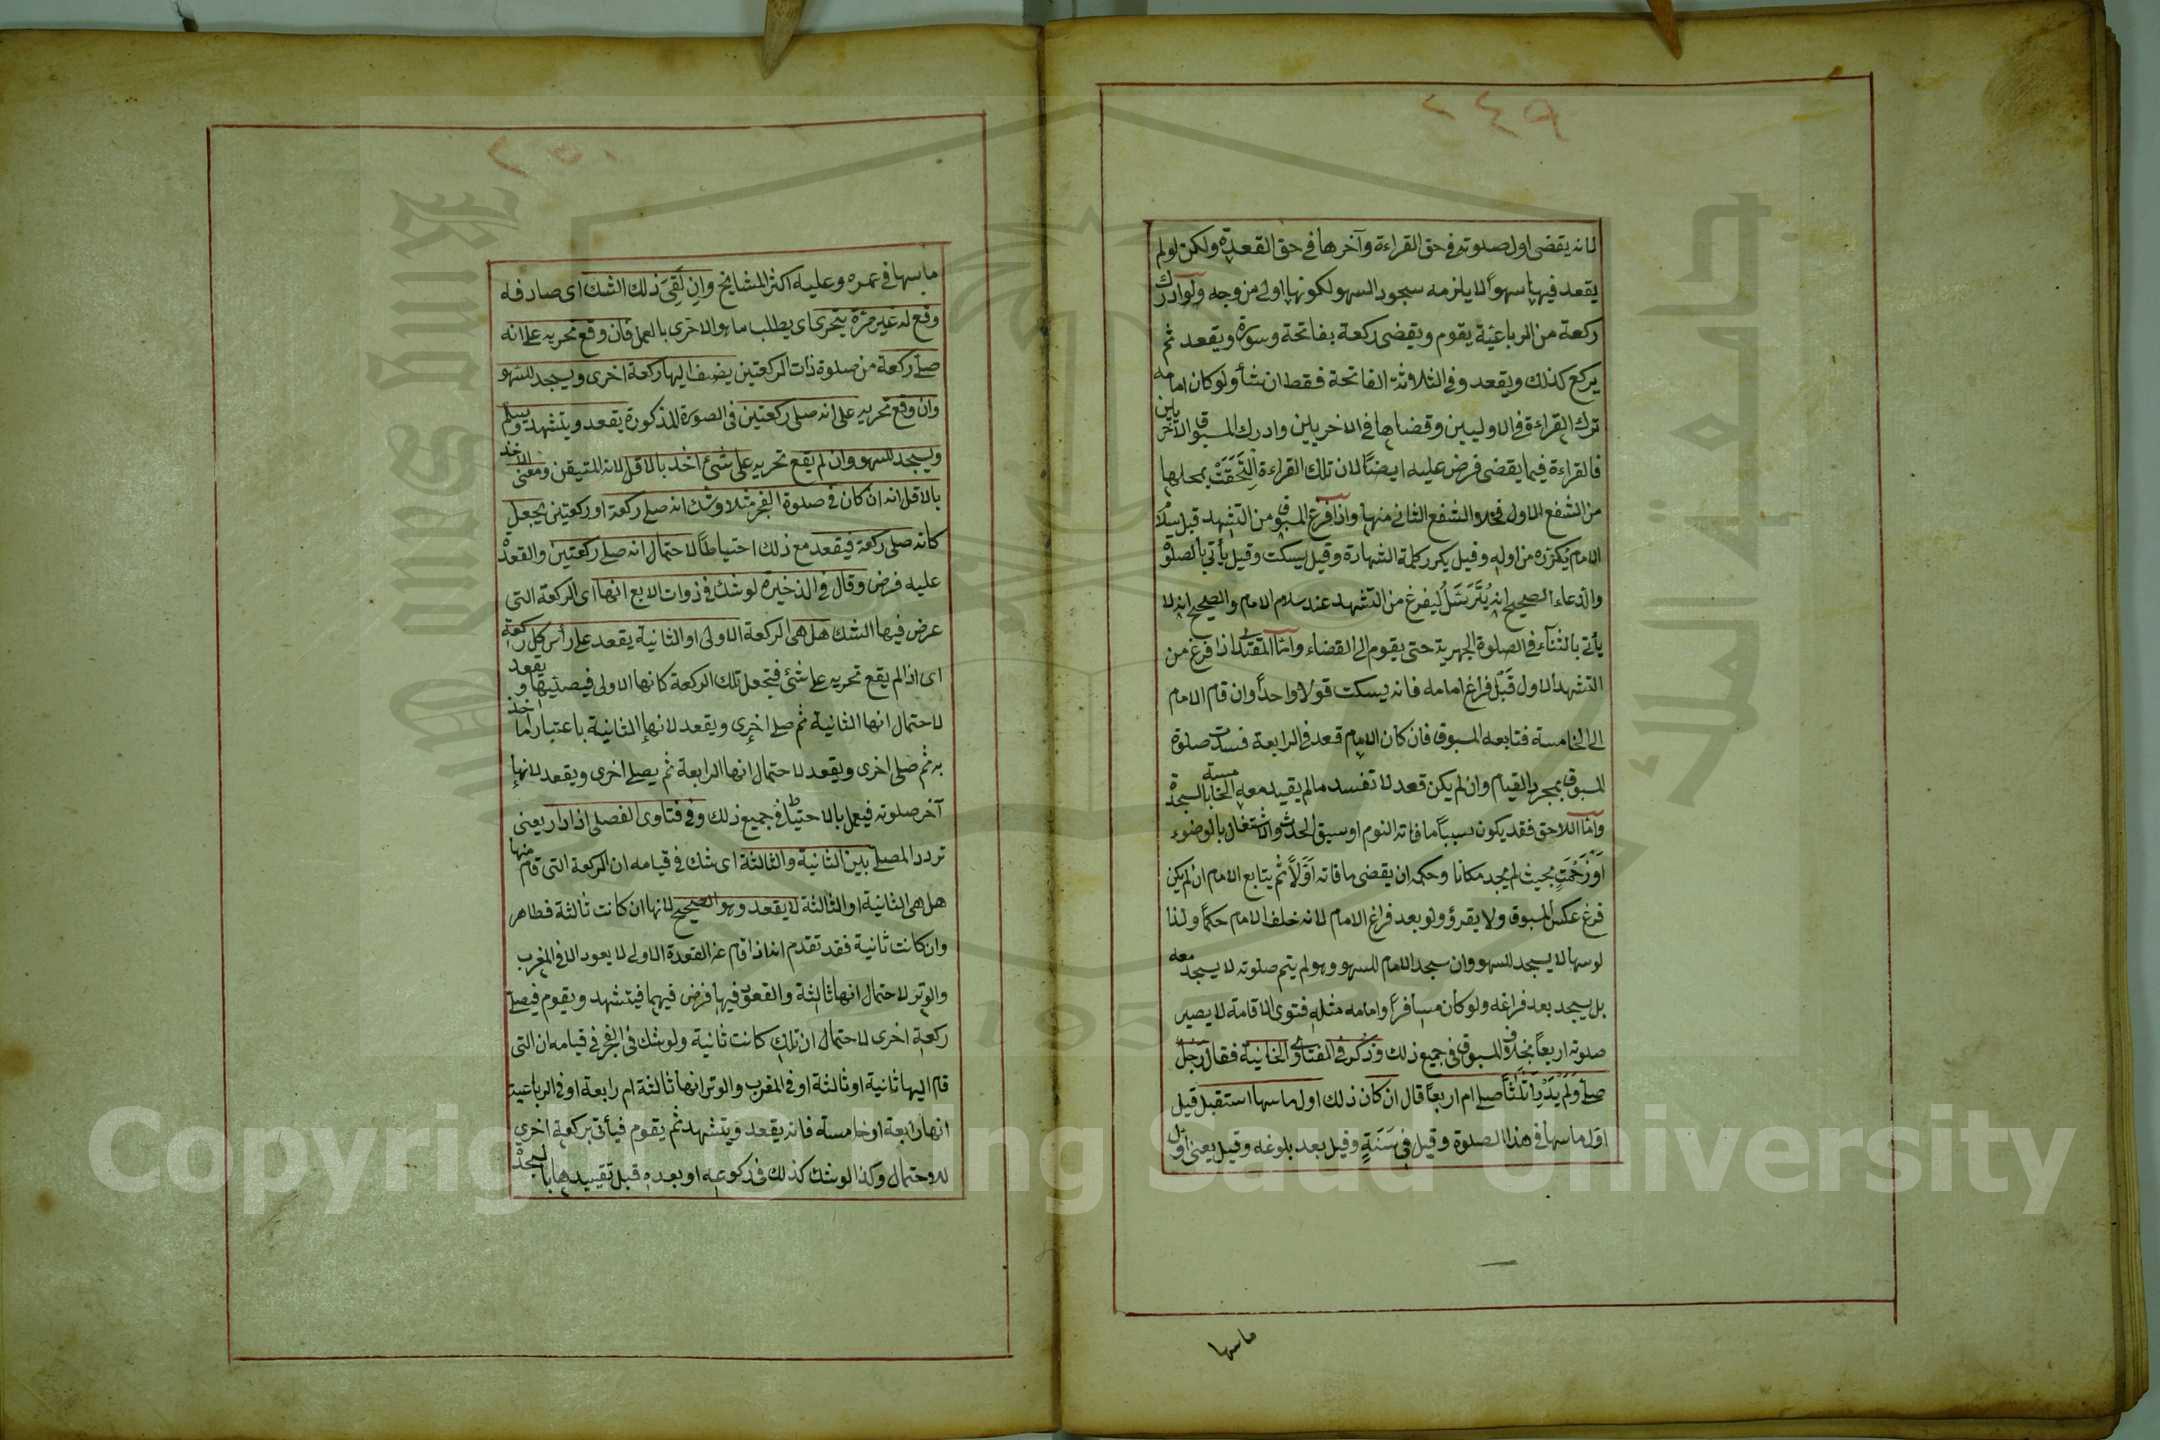 ٢٤٩
لانه يقضى اول صلوته فى حق القراءة وآخرها فى حق القعدة ولكن لو لم
يقعد فيها سهوا لا يلزمه سجود السهو لكونها اولى من وجه ولو ادرك
ركعة من الرباعية يقوم ويقضى ركعة بفاتحة وسورة ويقعد ثم
يركع كذلك ويقعد وفى الثلاثة الفاتحة فقط ان شأ ولو كان امامه
ترك القراءة فى الاوليين وقضاها فى الاخريين وادرك المسبوق الاخريين
فالقراءة فيما يقضى فرض عليه ايضًا لان تلك القراءة التحقت بمحلها
من الشفع الاول فخلا الشفع الثانى منها واذا فرغ المسبوق من التشهد قبل سلام
الامام يكرره من اوله وقيل يكرر كلمة الشهادة وقيل يسكت وقيل يأتى بالصلوة
والدعاء الصحيح انه يترسل ليفرغ من التشهد عند سلام الامام والصحيح انه لا
يأتى بالثناء فى الصلوة الجهرية حتى يقوم الى القضاء واما المقتدى اذا فرغ من
التشهد الاول قبل فراغ امامه فانه يسكت قولا واحدًا وان قام الامام
الى الخامسة فتابعه المسبوق فان كان الامام قعد فى الرابعة فسدت صلوة
المسبوق بمجرد القيام وان لم يكن قعد لا تفسد مالم يقيد معه الخامسة بالسجدة
واما اللاحق فقد يكون سبب ما فاته النوم او سبق الحدث والاشتغال بالوضوء
او زحمت بحيث لم يجد مكانا وحكمه ان يقضى ما فاته اولًا ثم يتابع الامام ان لم يكن
فرغ عكس المسبوق ولا يقرؤ ولو بعد فراغ الامام لانه خلف الامام حكمًا ولذا
لو سها لا يسجد للسهو وان سجد الامام للسهو وهو لم يتم صلوته لا يسجد معه
بل يسجد بعد فراغه ولو كان مسافرًا وامامه مثله فنوى الاقامة لا يصير
صلوته اربعًا بخلاف المسبوق فى جميع ذلك وذكر فى الفتاوى الخانية فقال رجل
صلى ولم يدر اثلثًا صلى ام اربعًا قال ان كان ذلك اول ما سها استقبل قيل
اول ما سها فى هذا الصلوة وقيل فى سنة وقيل بعد بلوغه وقيل يعنى اول
ما سها
٢٥٠
ما سها فى عمره وعليه اكثر المشايخ وان لقى ذلك الشك اى صادفه
وقع له غير مرة يتحرى اى يطلب ما هو الاحرى بالعمل فان وقع تحريه على انه
صلى ركعة من صلوة ذات الركعتين يضيف اليها ركعة اخرى ويسجد للسهو
وان وقع تحريه على انه صلى ركعتين فى الصورة المذكورة يقعد ويتشهد ويسلم
ويسجد للسهو وان لم يقع تحريه على شئ اخذ بالاقل لانه المتيقن ومعنى الاخذ
بالاقل انه ان كان فى صلوة الفجر مثلا وشك انه صلى ركعة او ركعتين يجعل
كانه صلى ركعة فيقعد مع ذلك احتياطًا لاحتمال انه صلى ركعتين والقعدة
عليه فرض وقال فى الذخيرة لو شك فى ذوات الاربع انها اى الركعة التى
عرض فيها الشك هل هى الركعة الاولى او الثانية يقعد على رأس كل ركعة
اى اذا لم يقع تحريه على شئ فيجعل تلك الركعة كانها الاولى فيصليها ويقعد
لاحتمال انها الثانية ثم صلى اخرى ويقعد لانها الثانية باعتبار ما اخذ
به ثم صلى اخرى ويقعد لاحتمال انها الرابعة ثم يصلى اخرى ويقعد لانها
آخر صلوته فيعمل بالاحتياط فى جميع ذلك وفى فتاوى الفصلى اذا دار يعنى
تردد المصلى بين الثانية والثالثة اى شك فى قيامه ان الركعة التى قام منها
هل هى الثانية او الثالثة لا يقعد وهو الصحيح لانها ان كانت ثالثة فطاهر
وان كانت ثانية فقد تقدم انه اذا قام عن القعدة الاولى لا يعود الا فى المغرب
والوتر لاحتمال انها ثالثة والقعود فيها فرض فيهما فيتشهد ويقوم فيصلى
ركعة اخرى لاحتمال ان تلك كانت ثانية ولو شك فى الفجر فى قيامه ان التى
قام اليها ثانية او ثالثة او فى المغرب والوتر انها ثالثة ام رابعة او فى الرباعية
انها رابعة او خامسة فانه يقعد ويتشهد ثم يقوم فيأتى بركعة اخرى
للاحتمال وكذا لو شك كذلك فى ركوعه او بعده قبل تقييدها بالسجدة
جامعة الملك سعود
King Saud University
1957
Copyright © King Saud University